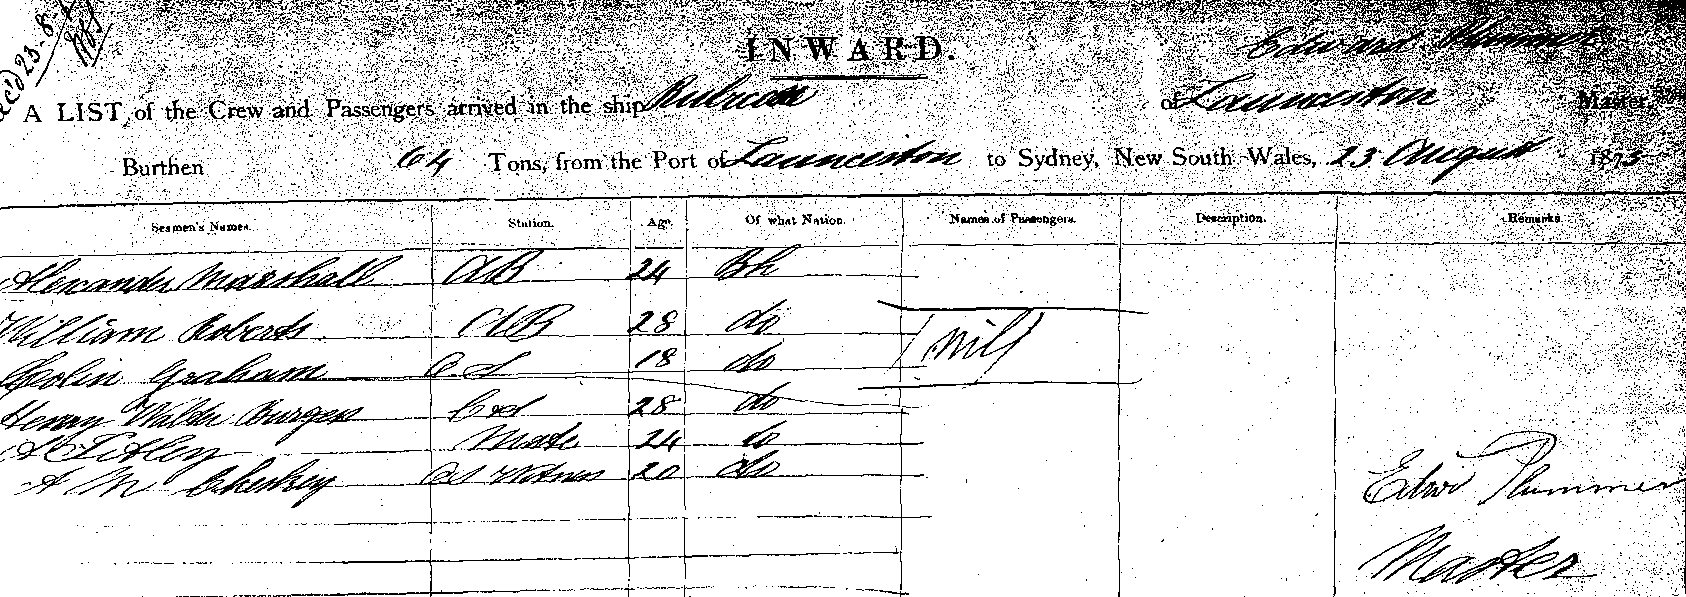 Rec'd 23.8.
INWARD.
Edward Plummer
A LIST of the Crew and Passengers arrived in the ship Rubicon of Launceston Master,
Burthen 64 Tons, from the Port of Launceston to Sydney, New South Wales, 23 August 1873
Seamen's Names. Station. Age. Of what Nation. Names of Passengers. Description. Remarks.
Alexander Marshall AB 24 Bh
William Roberts AB 28 do
Colin Graham 18 do
nill
Henry Burgess 28 do
Mate 24 do
A M 20 do
Edwd Plummer
Master